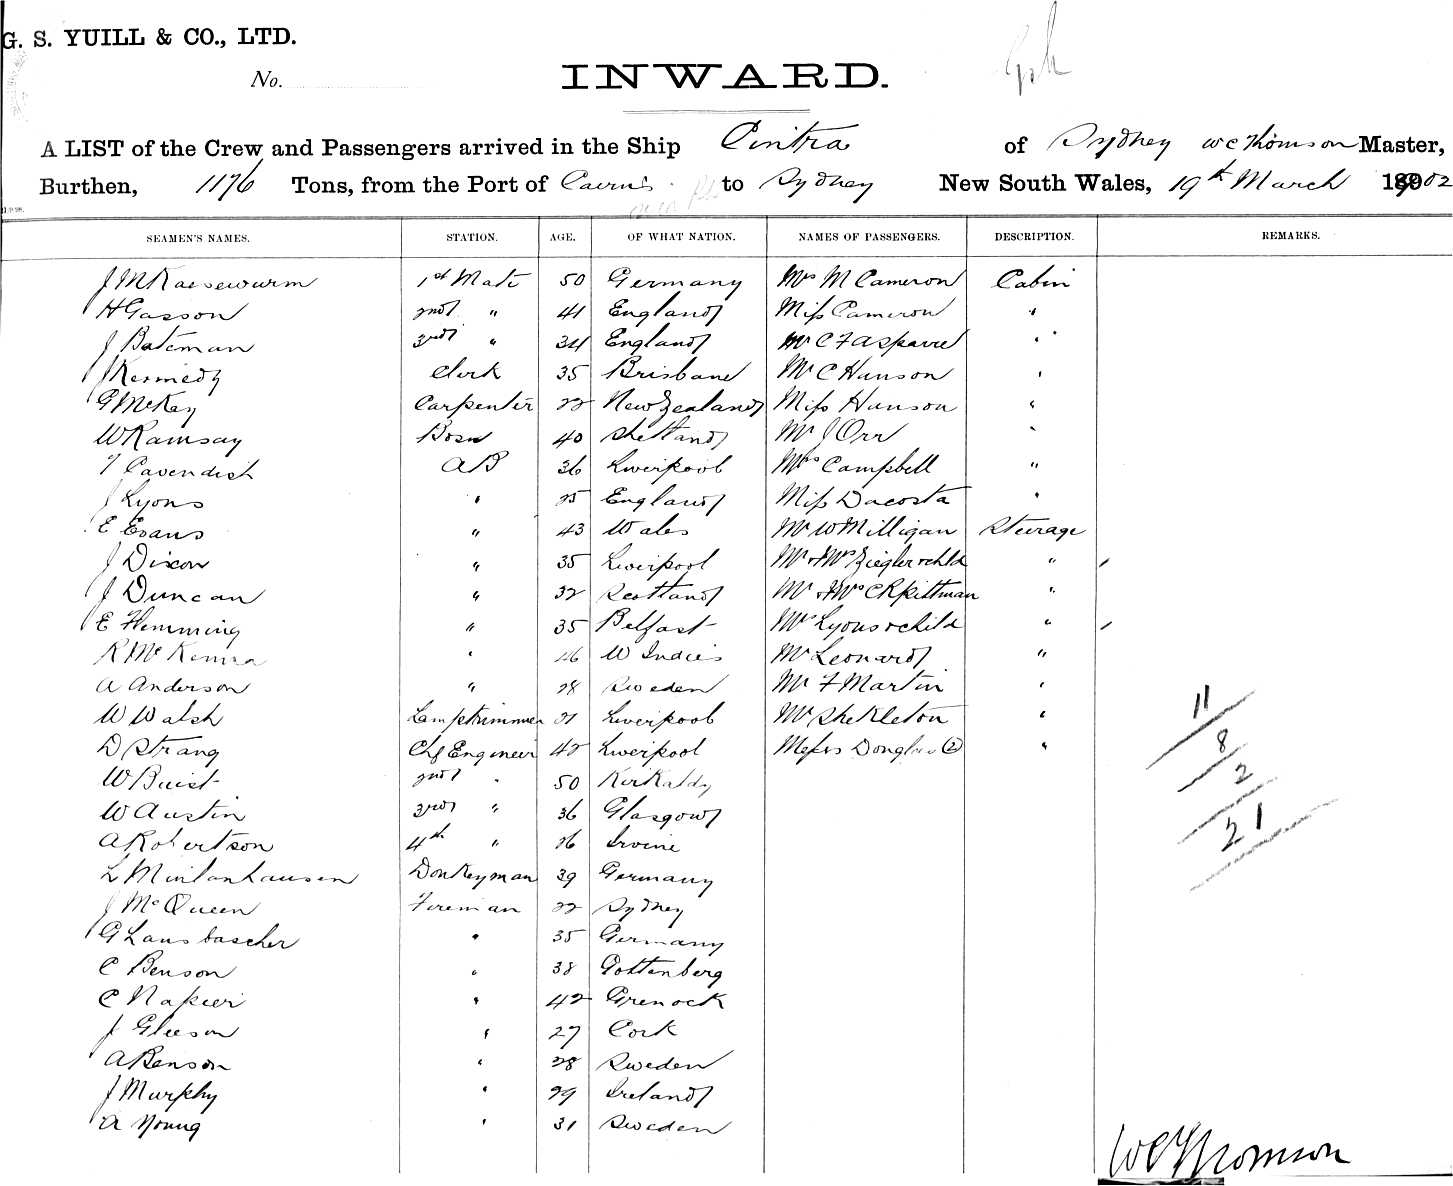 G. S. YUILL & CO., LTD.
No.
INWARD.
A LIST of the Crew and Passengers arrived in the Ship Cintra of Sydney W C Thomson Master,
Burthen, 1176 Tons, from the Port of Cairns to Sydney New South Wales, 19th March 1902
SEAMEN'S NAMES. STATION. AGE. OF WHAT NATION. NAMES OF PASSENGERS. DESCRIPTION. REMARKS.
J M Kaesewurm 1st Mate 50 Germany Mrs M Cameron Cabin
H Gasson 2nd " 41 England Miss Cameron "
J Bateman 3rd " 34 England Mr C F "
J Kennedy Clerk 35 Brisbane Mr C Hunson "
G McKay Carpenter 22 New Zealand Miss Hunson "
W Ramsay Bosn 40 Shetland Mr J Orr "
T Cavendish AB 36 Liverpool Mrs Campbell "
J Lyons " 25 England Miss Dacosta "
E Evans " 43 Wales Mr W Milligan Steerage
J Dixon " 35 Liverpool Mr & Mrs Ziegler & chld "
J Duncan " 32 Scotland Mr & Mrs C R Pittman "
E Flemming " 35 Belfast Mrs Lyons & child "
R McKenna " 46 W Indies Mr Leonard "
A Anderson " 28 Sweden Mr F Martin "
W Walsh Lamptrimmer 21 Liverpool Mr Shekleton "
D Strang Chf Engineer 42 Liverpool Messrs Douglas (2) "
W Buist 2nd " 50 Kirkaldy
W Austin 3rd " 36 Glasgow
A Robertson 4th " 26 Irvine
L Donkeyman 39 Germany
J McQueen Fireman 22 Sydney
G Lansbascher " 35 Germany
C Benson " 38 Gottenberg
C Napier " 42 Grenock
J Gleeson " 27 Cork
A Benson " 28 Sweden
J Murphy " 29 Ireland
A Young " 31 Sweden
11
8
2
21
W C Thomson